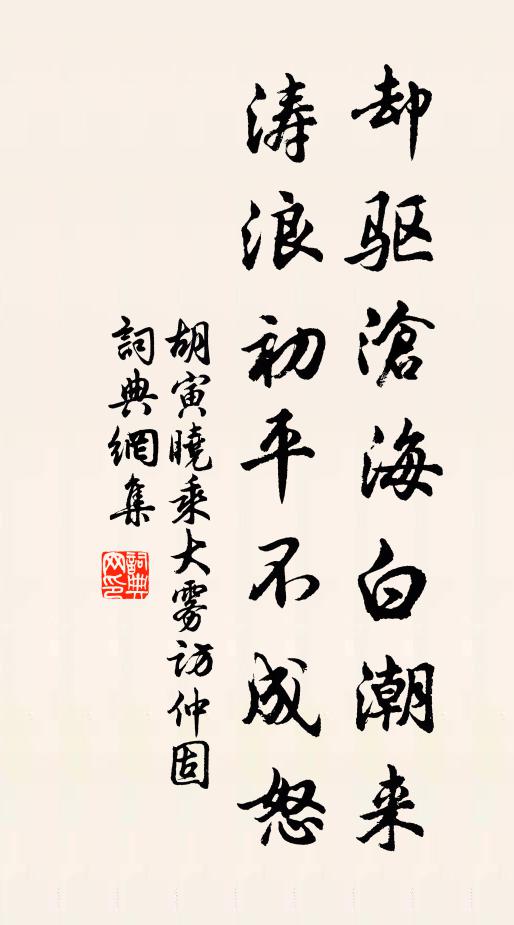 却驱滄海白潮来
涛浪初平不成怒
胡寅曉乘大雾访仲固
詞典網集
詞典
网印